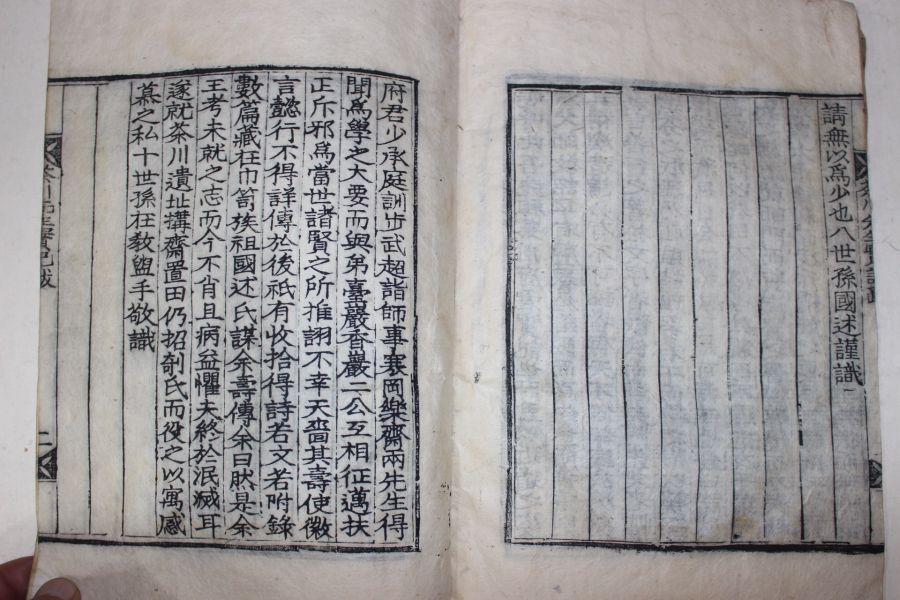 請無以爲少也八世孫國述謹識
府君少承庭訓步武趨詣師事寒岡樂齋兩先生得
聞爲學之大要而與弟臺巖香巖二公互相征邁扶
正斥邪爲當世諸賢之所推詡不幸天嗇其壽使徽
言懿行不得詳傳於後祇有收拾得詩若文若附錄
數篇藏在巾笥族祖國述氏謀余壽傳余曰肰是余
王考未就之志而今不肖且病益懼夫終於泯滅耳
遂就茶川遺址搆齋置田仍招剞氏而役之以寓感
慕之私十世孫在敎盥手敬識
二